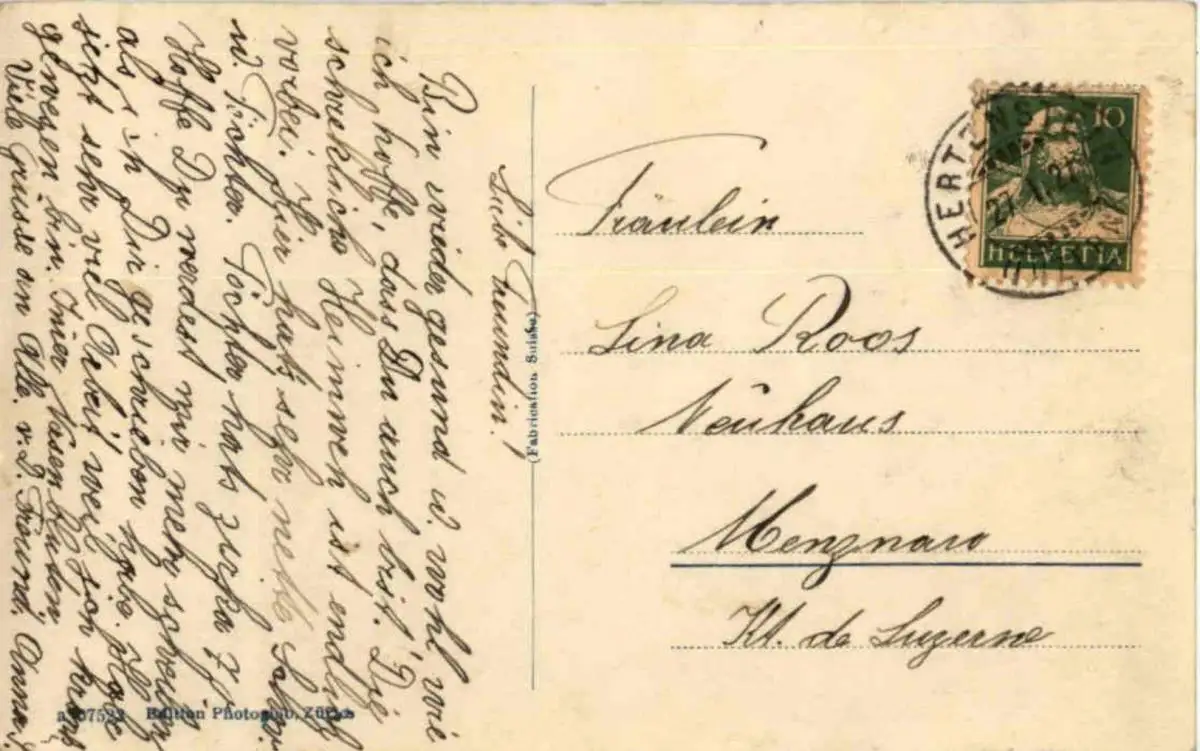 Liebe Freundin!
Bin wieder gesund u. wohl, wie
ich hoffe, dass Du auch bist. Die
schreklichs Heimweh ist endlich
vorbei. Hier hats sehr nette
u. Töchter. Töchter hats zirka 7.
Hoffe Du werdest mir mehr schreiben
als ich Dir geschrieben habe. Habe
jetzt sehr viel Arbeit weil
gewesen bin.
Viele Grüsse an Alle. v. D. Freund. Anna
(Fabrication Suisse)
Edition Photoglob, Zürich
10
HELVETIA
HERTENSTEIN
Fräulein
Lina Roos
Neuhaus
Menznau
Kt. de Luzerne